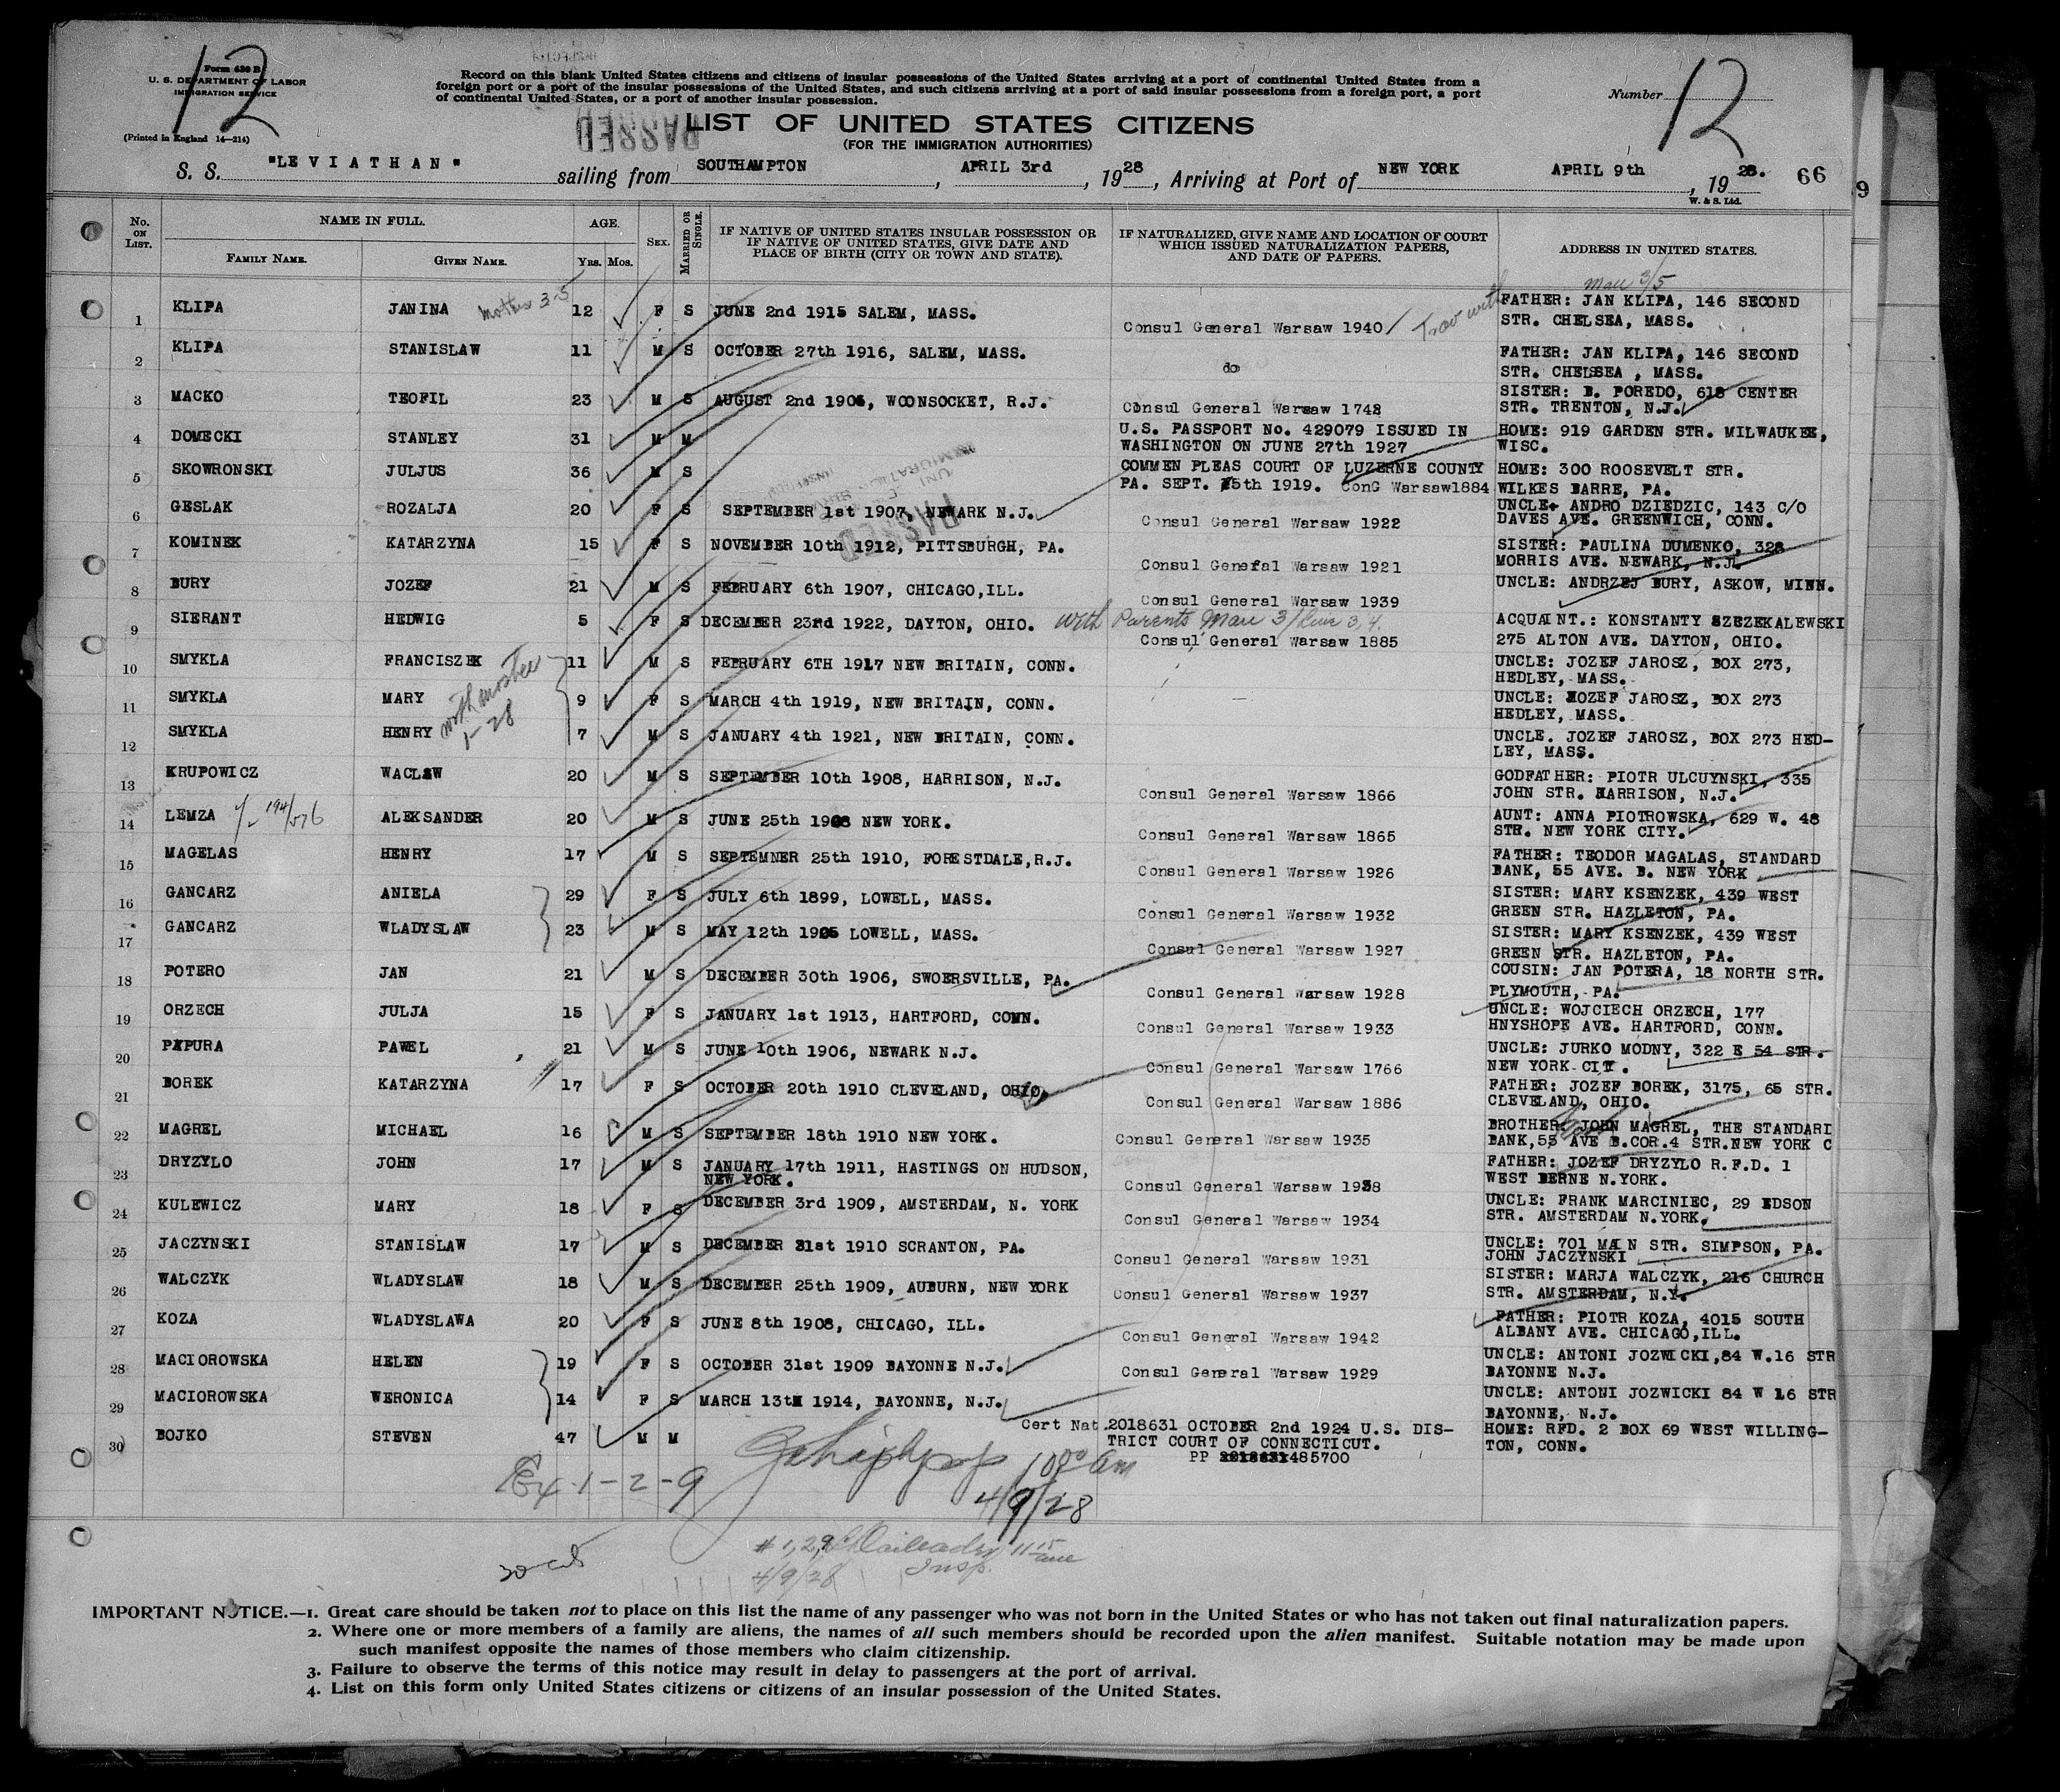 12
Form 630 B
U. S. DEPARTMENT OF LABOR
IMMIGRATION SERVICE
(Printed in England 14—214)
Record on this blank United States citizens and citizens of insular possessions of the United States arriving at a port of continental United States from a
foreign port or a port of the insular possessions of the United States, and such citizens arriving at a port of said insular possessions from a foreign port, a port
of continental United States, or a port of another insular possession.
Number 12
PASSED
LIST OF UNITED STATES CITIZENS
(FOR THE IMMIGRATION AUTHORITIES)
S. S. "LEVIATHAN" sailing from SOUTHAMPTON, APRIL 3rd, 1928, Arriving at Port of NEW YORK APRIL 9th, 1928. 66
W. & S. Ltd.
No. ON LIST. NAME IN FULL. FAMILY NAME. GIVEN NAME. AGE. YRS. MOS. SEX. MARRIED OR SINGLE. IF NATIVE OF UNITED STATES INSULAR POSSESSION OR IF NATIVE OF UNITED STATES, GIVE DATE AND PLACE OF BIRTH (CITY OR TOWN AND STATE). IF NATURALIZED, GIVE NAME AND LOCATION OF COURT WHICH ISSUED NATURALIZATION PAPERS, AND DATE OF PAPERS. ADDRESS IN UNITED STATES.
Man 3/5
1 KLIPA JANINA Mother 3-5 12 F S JUNE 2nd 1915 SALEM, MASS. Consul General Warsaw 1940 Trav with FATHER: JAN KLIPA, 146 SECOND
STR. CHELSEA, MASS.
2 KLIPA STANISLAW 11 M S OCTOBER 27th 1916, SALEM, MASS. do FATHER: JAN KLIPA, 146 SECOND
STR. CHELSEA , MASS.
3 MACKO TEOFIL 23 M S AUGUST 2nd 1905, WOONSOCKET, R.J. Consul General Warsaw 1748 SISTER: B. POREDO, 618 CENTER
STR. TRENTON, N.J.
4 DOMECKI STANLEY 31 M M U.S. PASSPORT No. 429079 ISSUED IN HOME: 919 GARDEN STR. MILWAUKEE,
WASHINGTON ON JUNE 27th 1927 WISC.
5 SKOWRONSKI JULJUS 36 M S COMMEN PLEAS COURT OF LUZERNE COUNTY HOME: 300 ROOSEVELT STR.
PA. SEPT. 15th 1919. ConG Warsaw1884 WILKES BARRE, PA.
6 GESLAK ROZALJA 20 F S SEPTEMBER 1st 1907, NEWARK N.J. Consul General Warsaw 1922 UNCLE+ ANDRO DZIEDZIC, 143 C/O
DAVES AVE. GREENWICH, CONN.
PASSED
7 KOMINEK KATARZYNA 15 F S NOVEMBER 10th 1912, PITTSBURGH, PA. Consul General Warsaw 1921 SISTER: PAULINA DUMENKO, 328
MORRIS AVE. NEWARK, N.J.
8 BURY JOZEF 21 M S FEBRUARY 6th 1907, CHICAGO,ILL. Consul General Warsaw 1939 UNCLE: ANDRZEJ BURY, ASKOW, MINN.
9 SIERANT HEDWIG 5 F S DECEMBER 23rd 1922, DAYTON, OHIO. with Parents Man 3/ line 3, 4. Consul General Warsaw 1885 ACQUAINT.: KONSTANTY SZEZEKALEWSKI
275 ALTON AVE. DAYTON, OHIO.
10 SMYKLA FRANCISZEK 11 M S FEBRUARY 6TH 1917 NEW BRITAIN, CONN. UNCLE: JOZEF JAROSZ, BOX 273,
HEDLEY, MASS.
with mother
1-28
11 SMYKLA MARY 9 F S MARCH 4th 1919, NEW BRITAIN, CONN. UNCLE: JOZEF JAROSZ, BOX 273
HEDLEY, MASS.
12 SMYKLA HENRY 7 M S JANUARY 4th 1921, NEW BRITAIN, CONN. UNCLE. JOZEF JAROSZ, BOX 273 HED-
LEY, MASS.
13 KRUPOWICZ WACLAW 20 M S SEPTEMBER 10th 1908, HARRISON, N.J. Consul General Warsaw 1866 GODFATHER: PIOTR ULCUYNSKI, 335
JOHN STR. HARRISON, N.J.
14 LEMZA ALEKSANDER 20 M S JUNE 25th 1908 NEW YORK. Consul General Warsaw 1865 AUNT: ANNA PIOTROWSKA, 629 W. 48
STR. NEW YORK CITY.
15 MAGELAS HENRY 17 M S SEPTEMNER 25th 1910, FORESTDALE,R.J. Consul General Warsaw 1926 FATHER: TEODOR MAGALAS, STANDARD
BANK, 55 AVE. B. NEW YORK
16 GANCARZ ANIELA 29 F S JULY 6th 1899, LOWELL, MASS. Consul General Warsaw 1932 SISTER: MARY KSENZEK, 439 WEST
GREEN STR. HAZLETON, PA.
17 GANCARZ WLADYSLAW 23 M S MAY 12th 1905 LOWELL, MASS. Consul General Warsaw 1927 SISTER: MARY KSENZEK, 439 WEST
GREEN STR. HAZLETON, PA.
18 POTERO JAN 21 M S DECEMBER 30th 1906, SWOERSVILLE, PA. Consul General Warsaw 1928 COUSIN: JAN POTERA, 18 NORTH STR.
PLYMOUTH, PA.
19 ORZECH JULJA 15 F S JANUARY 1st 1913, HARTFORD, CONN. Consul General Warsaw 1933 UNCLE: WOJCIECH ORZECH, 177
HNYSHOPE AVE. HARTFORD, CONN.
20 PAPURA PAWEL 21 M S JUNE 10th 1906, NEWARK N.J. Consul General Warsaw 1766 UNCLE: JURKO MODNY, 322 E 54 STR.
NEW YORK CIT.
21 BOREK KATARZYNA 17 F S OCTOBER 20th 1910 CLEVELAND, OHIO, Consul General Warsaw 1886 FATHER: JOZEF BOREK, 3175, 65 STR.
CLEVELAND, OHIO.
22 MAGREL MICHAEL 16 M S SEPTEMBER 18th 1910 NEW YORK. Consul General Warsaw 1935 BROTHER: JOHN MAGREL, THE STANDARD
BANK,55 AVE B.COR.4 STR.NEW YORK C
23 DRYZYLO JOHN 17 M S JANUARY 17th 1911, HASTINGS ON HUDSON, FATHER: JOZEF DRYZYLO R.F.D. 1
NEW YORK. Consul General Warsaw 1938 WEST BERNE N.YORK.
24 KULEWICZ MARY 18 F S DECEMBER 3rd 1909, AMSTERDAM, N. YORK Consul General Warsaw 1934 UNCLE: FRANK MARCINIEC, 29 EDSON
STR. AMSTERDAM N.YORK.
25 JACZYNSKI STANISLAW 17 M S DECEMBER 31st 1910 SCRANTON, PA. Consul General Warsaw 1931 UNCLE: 701 MAIN STR. SIMPSON, PA.
JOHN JACZYNSKI
26 WALCZYK WLADYSLAW 18 M S DECEMBER 25th 1909, AUBURN, NEW YORK Consul General Warsaw 1937 SISTER: MARJA WALCZYK, 216 CHURCH
STR. AMSTERDAM, N.Y.
27 KOZA WLADYSLAWA 20 F S JUNE 8th 1908, CHICAGO, ILL. Consul General Warsaw 1942 FATHER: PIOTR KOZA, 4015 SOUTH
ALBANY AVE. CHICAGO,ILL.
28 MACIOROWSKA HELEN 19 F S OCTOBER 31st 1909 BAYONNE N.J. Consul General Warsaw 1929 UNCLE: ANTONI JOZWICKI,84 W.16 STR
BAYONNE N.J.
29 MACIOROWSKA WERONICA 14 F S MARCH 13th 1914, BAYONNE, N.J. UNCLE: ANTONI JOZWICKI 84 W 16 STR
BAYONNE, N.J.
30 BOJKO STEVEN 47 M M Cert Nat.2018631 OCTOBER 2nd 1924 U.S. DIS- HOME: RFD. 2 BOX 69 WEST WILLING-
TRICT COURT OF CONNECTICUT. TON, CONN.
PP 2018631485700
Ex 1-2-9
10 00 am
4/9/28
# 1,2,9 11 15 am
Insp.
4/9/28
IMPORTANT NOTICE.—1. Great care should be taken not to place on this list the name of any passenger who was not born in the United States or who has not taken out final naturalization papers.
2. Where one or more members of a family are aliens, the names of all such members should be recorded upon the alien manifest. Suitable notation may be made upon
such manifest opposite the names of those members who claim citizenship.
3. Failure to observe the terms of this notice may result in delay to passengers at the port of arrival.
4. List on this form only United States citizens or citizens of an insular possession of the United States.